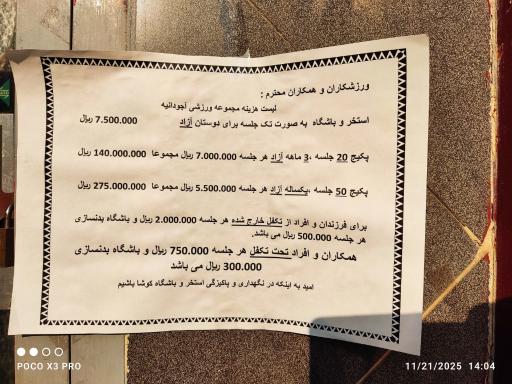 ورزشکاران و همکاران محترم :
لیست هزینه مجموعه ورزشی آجودانیه
استخر و باشگاه به صورت تک جلسه برای دوستان آزاد 7.500.000 ریال
پکیج 20 جلسه ،3 ماهه آزاد هر جلسه 7.000.000 ریال مجموعا 140.000.000 ریال
پکیج 50 جلسه ،یکساله آزاد هر جلسه 5.500.000 ریال مجموعا 275.000.000 ریال
برای فرزندان و افراد از تکفل خارج شده هر جلسه 2.000.000 ریال و باشگاه بدنسازی
هر جلسه 500.000 ریال می باشد.
همکاران و افراد تحت تکفل هر جلسه 750.000 ریال و باشگاه بدنسازی
300.000 ریال می باشد
امید به اینکه در نگهداری و پاکیزگی استخر و باشگاه کوشا باشیم
POCO X3 PRO
11/21/2025 14:04